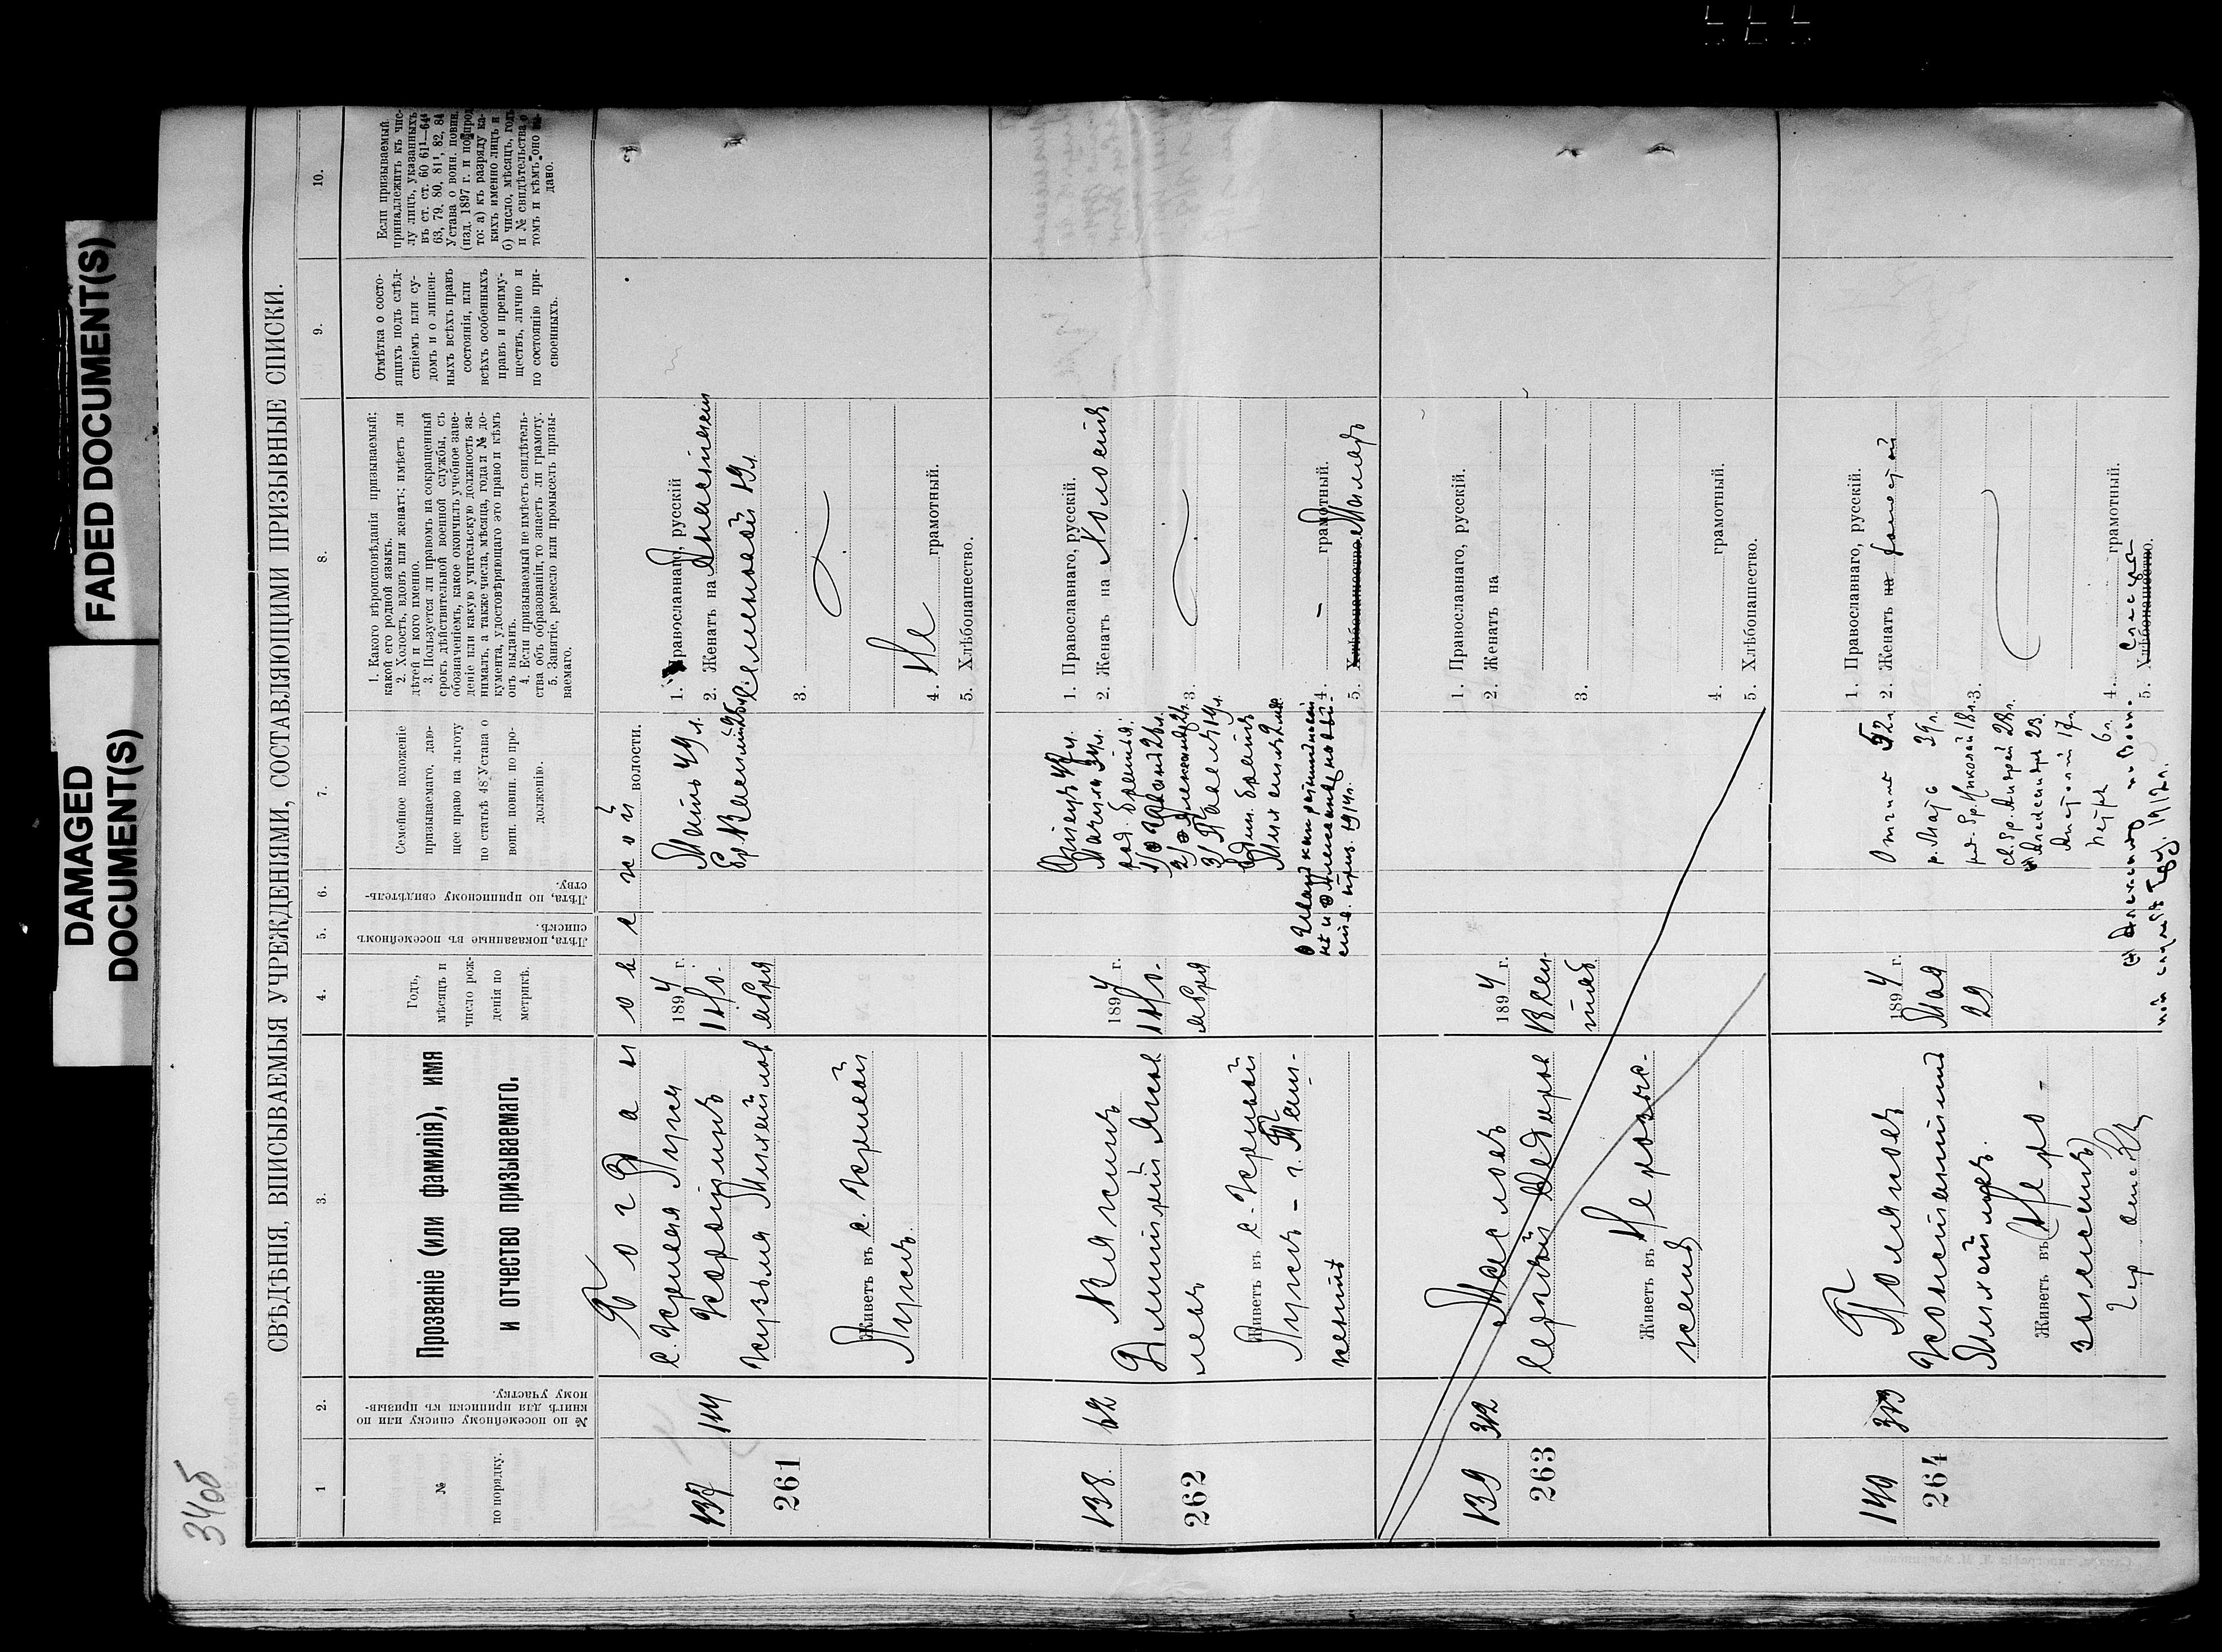 FADED DOCUMENT(S)
DAMAGED
DOCUMENT(S)
34об
СВѢДѢНІЯ, ВПИСЫВАЕМЫЯ УЧРЕЖДЕНІЯМИ, СОСТАВЛЯЮЩИМИ ПРИЗЫВНЫЕ СПИСКИ.
1
2.
3.
4.
5.
6.
7.
8.
9.
10.
№
по порядку.
№ по посемейному списку или по
книгѣ для приписки къ призыв-
ному участку.
Прозваніе (или фамилія), имя
и отчество призываемаго.
Годъ,
мѣсяцъ и
число рож-
денія по
метрикѣ.
Лѣта, показанные въ посемейномъ
спискѣ.
Лѣта, по приписному свидѣтель-
ству.
Семейное положеніе
призываемаго, даю-
щее право на льготу
по статьѣ 48 Устава о
воин. повин. по про-
долженію.
1. Какого вѣроисповѣданія призываемый;
какой его родной языкъ.
2. Холостъ, вдовъ или женатъ; имѣетъ ли
дѣтей и кого именно.
3. Пользуется ли правомъ на сокращенный
срокъ дѣйствительной военной службы, съ
обозначеніемъ, какое окончилъ учебное заве-
деніе или какую учительскую должность за-
нималъ, а также числа, мѣсяца, года и № до-
кумента, удостовѣряющаго это право и кѣмъ
онъ выданъ.
4. Если призываемый не имѣетъ свидѣтель-
ства объ образованіи, то знаетъ ли грамоту.
5. Занятіе, ремесло или промыселъ призы-
ваемаго.
Отмѣтка о состо-
ящихъ подъ слѣд-
ствіемъ или су-
домъ и о лишен-
ныхъ всѣхъ правъ
состоянія, или
всѣхъ особенныхъ
правъ и преиму-
ществъ, лично и
по состоянію при-
своенныхъ.
Если призываемый
принадлежитъ къ чис-
лу лицъ, указанныхъ
въ ст. ст. 60 61¹—64⁴
63, 79, 80, 81¹, 82, 84
Устава о воин. повин.
(изд. 1897 г. и по прод.
то: а) къ разряду ка-
кихъ именно лицъ и
б) число, мѣсяцъ, годъ
и № свидѣтельства о
томъ и кѣмъ оно вы-
дано.
Богдановской волости.
137
261
с. Кривая Лука
Каратинъ
Кузьма Михайлов
Живетъ въ с. Кривой
Лукѣ.
1894 г.
1 Но-
ября
Мать 49 л.
1. Православнаго, русскій
2. Женатъ на Анастасіи
19 л.
3.
4. Не грамотный.
5. Хлѣбопашество.
138.
62
262
Дмитрій Яков
левъ
Живетъ въ с. Кривой
Лукѣ - г. Таш-
кентѣ
1894 г.
1 Но-
ября
Отецъ 47 л.
род. братья:
3/ Павелъ 19 л.
1. Православнаго, русскій.
2. Женатъ на Холостъ
3.
4. - грамотный.
5. Хлѣбопашество. Маляръ
139
312
263
Масловъ
Сергѣй Ѳедоров
Живетъ въ Не розыс-
канъ
1894 г.
1. Православнаго, русскій.
2. Женатъ на
3.
4. грамотный.
5. Хлѣбопашество.
140
313
264
Поляковъ
Константинъ
Михайловъ.
Живетъ въ
1894 г.
Мая
29
Отчимъ 52 л.
р. Мать 39 л.
род. бр. Николай 18 л.
св. бр. Андрей 28 л.
Александръ 23.
Анатолій 17 л.
Петръ 6 л.
1. Православнаго, русскій.
2. Женатъ на холостой
3.
4. грамотный.
5. Хлѣбопашество. Слесарь